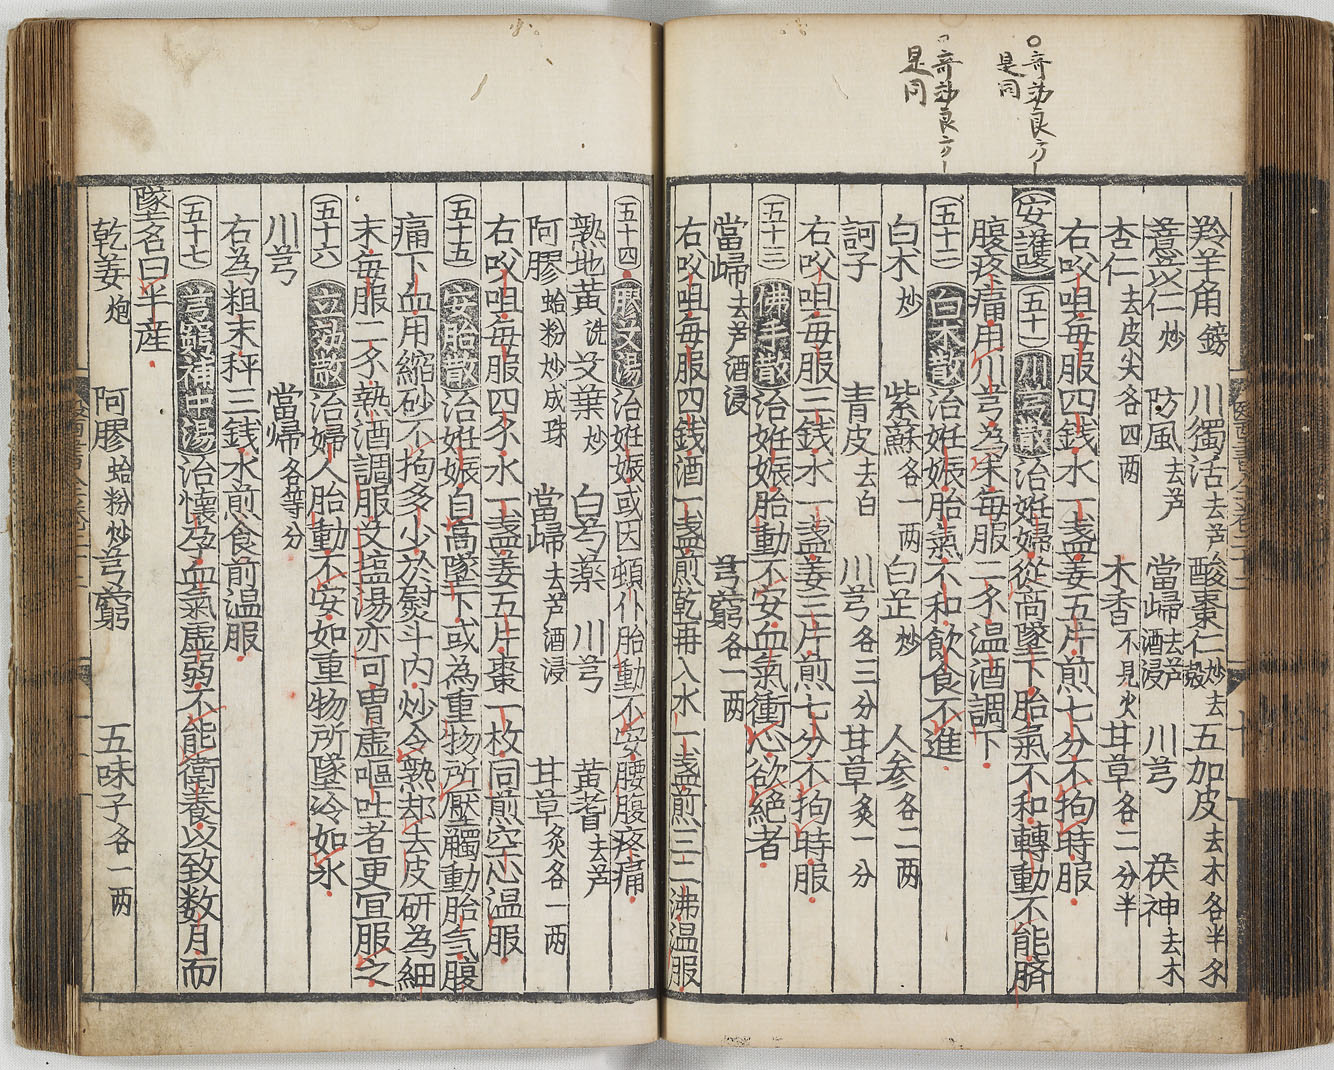 ○奇効良方一
是同
○奇効良方一
是同
羚羊角鎊 川獨活去芦 酸棗仁炒去殼 五加皮去木各半匁
薏苡仁炒 防風去芦 當歸去芦酒浸 川芎 茯神去木
杏仁去皮尖各四两 木香不見火 甘草各二分半
右㕮咀毎服四銭水一盞姜五片煎七分不拘時服
安護 五十一 川芎散 治姙婦從高墜下胎氣不和轉動不能臍
腹疼痛用川芎為末毎服二匁温酒調下
五十二 白朮散 治姙娠胎氣不和飲食不進
白朮炒 紫蘇各一两 白芷炒 人参各二两
訶子 青皮去白 川芎各三分 甘草炙一分
右㕮咀毎服三銭水一盞姜三片煎七分不拘時服
五十三 佛手散 治姙娠胎動不安血氣衝心欲絶者
當歸去芦酒浸 芎藭各一两
右㕮咀毎服四銭酒一盞煎乾再入水一盞煎三二沸温服
五十四 膠艾湯 治姙娠或因頓仆胎動不安腰腹疼痛
熟地黄洗 艾葉炒 白芍薬 川芎 黄耆去芦
阿膠蛤粉炒成珠 當歸去芦酒浸 甘草炙各一两
右㕮咀毎服四匁水一盞姜五片棗一枚同煎空心温服
五十五 安胎散 治姙娠自高墜下或為重物所壓觸動胎氣腹
痛下血用縮砂不拘多少於熨斗内炒令熟却去皮研為細
末毎服二匁熱酒調服艾塩湯亦可胃虚嘔吐者更宜服之
五十六 立効散 治婦人胎動不安如重物所墜冷如氷
川芎 當歸各等分
右為粗末秤三銭水煎食前温服
五十七 芎藭補中湯 治懷孕血氣虚弱不能衛養以致数月而
墜名曰半産
乾姜炮 阿膠蛤粉炒 芎藭 五味子各一两